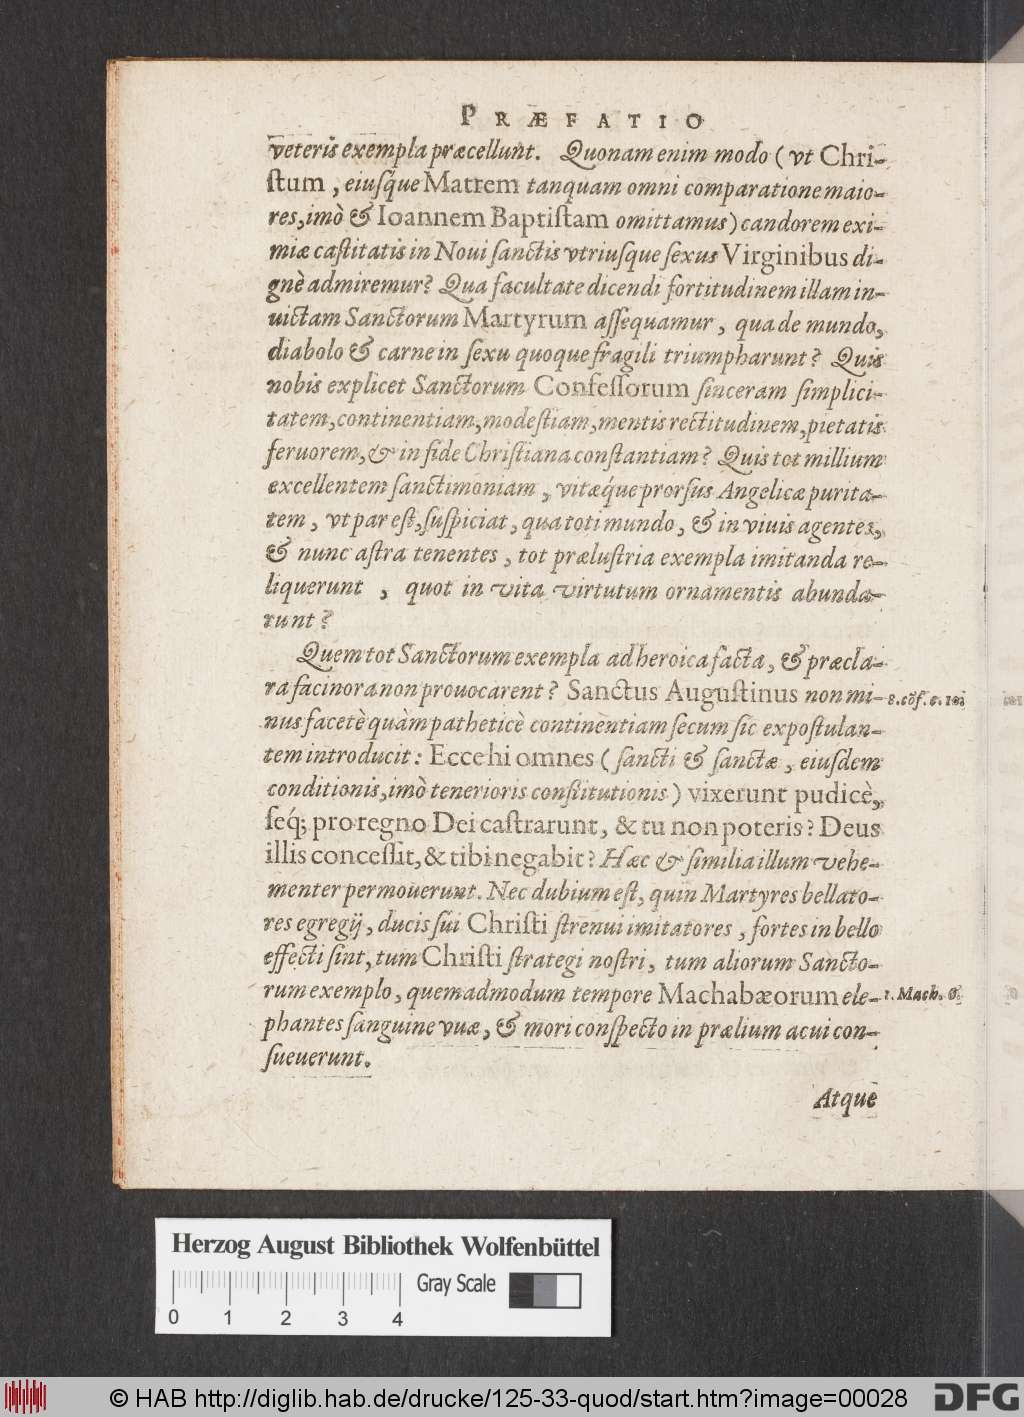 PRÆFATIO
veteris exempla præcellunt. Quonam enim modo (vt Chri-
stum, eiusq́ue Matrem tanquam omni comparatione maio-
res, imò & Ioannem Baptistam omittamus) candorem exi-
miæ castitatis in Noui sanctis vtriusque sexus Virginibus di-
gnè admiremur? Qua facultate dicendi fortitudinem illam in-
uictam Sanctorum Martyrum assequamur, qua de mundo,
diabolo & carne in sexu quoque fragili triumpharunt? Quis
nobis explicet Sanctorum Confessorum sinceram simplici-
tatem, continentiam, modestiam, mentis rectitudinem, pietatis
feruorem, & in fide Christiana constantiam? Quis tot millium
excellentem sanctimoniam, vitæq́ue prorsus Angelicæ purita-
tem, vt par est, suspiciat, qua toti mundo, & in viuis agentes,
& nunc astra tenentes, tot prælustria exempla imitanda re-
liquerunt, quot in vita virtutum ornamentis abunda-
runt?
Quem tot Sanctorum exempla ad heroica facta, & præcla-
ra facinora non prouocarent? Sanctus Augustinus non mi-
8. cōf. c. 11
nus facetè quàm patheticè continentiam secum sic expostulan-
tem introducit: Ecce hi omnes (sancti & sanctæ, eiusdem
conditionis, imò tenerioris constitutionis) vixerunt pudicè,
seq́; pro regno Dei castrarunt, & tu non poteris? Deus
illis concessit, & tibi negabit? Hæc & similia illum vehe-
menter permouerunt. Nec dubium est, quin Martyres bellato-
res egregij, ducis sui Christi strenui imitatores, fortes in bello
effecti sint, tum Christi strategi nostri, tum aliorum Sancto-
rum exemplo, quemadmodum tempore Machabæorum ele-
1. Mach. 6.
phantes sanguine vuæ, & mori conspecto in prælium acui con-
sueuerunt.
Atque
Herzog August Bibliothek Wolfenbüttel
Gray Scale
0 1 2 3 4
© HAB http://diglib.hab.de/drucke/125-33-quod/start.htm?image=00028
DFG